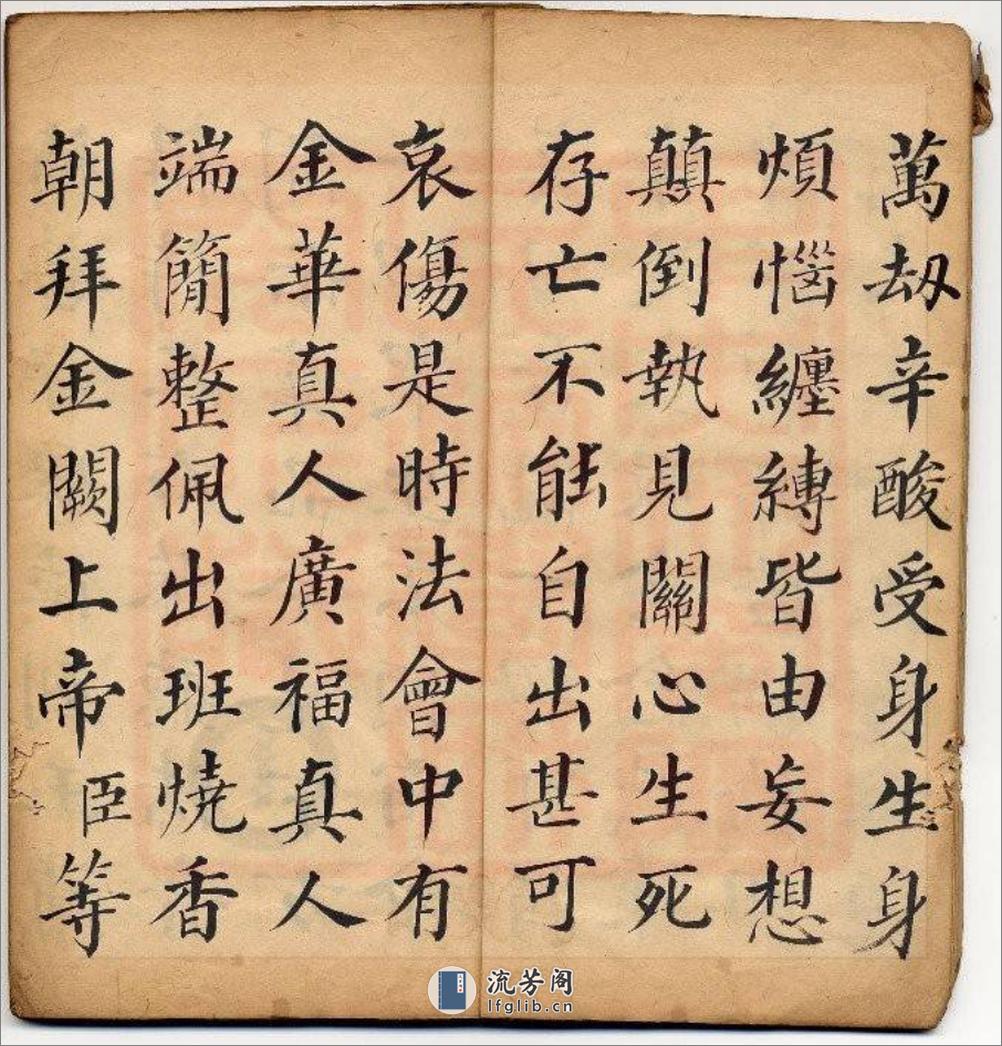 萬劫辛酸受身生身
煩惱纏縛皆由妄想
顛倒執見關心生死
存亡不能自出甚可
哀傷是時法會中有
金華真人廣福真人
端簡整佩出班燒香
朝拜金闕上帝臣等
流芳阁
lfglib.cn